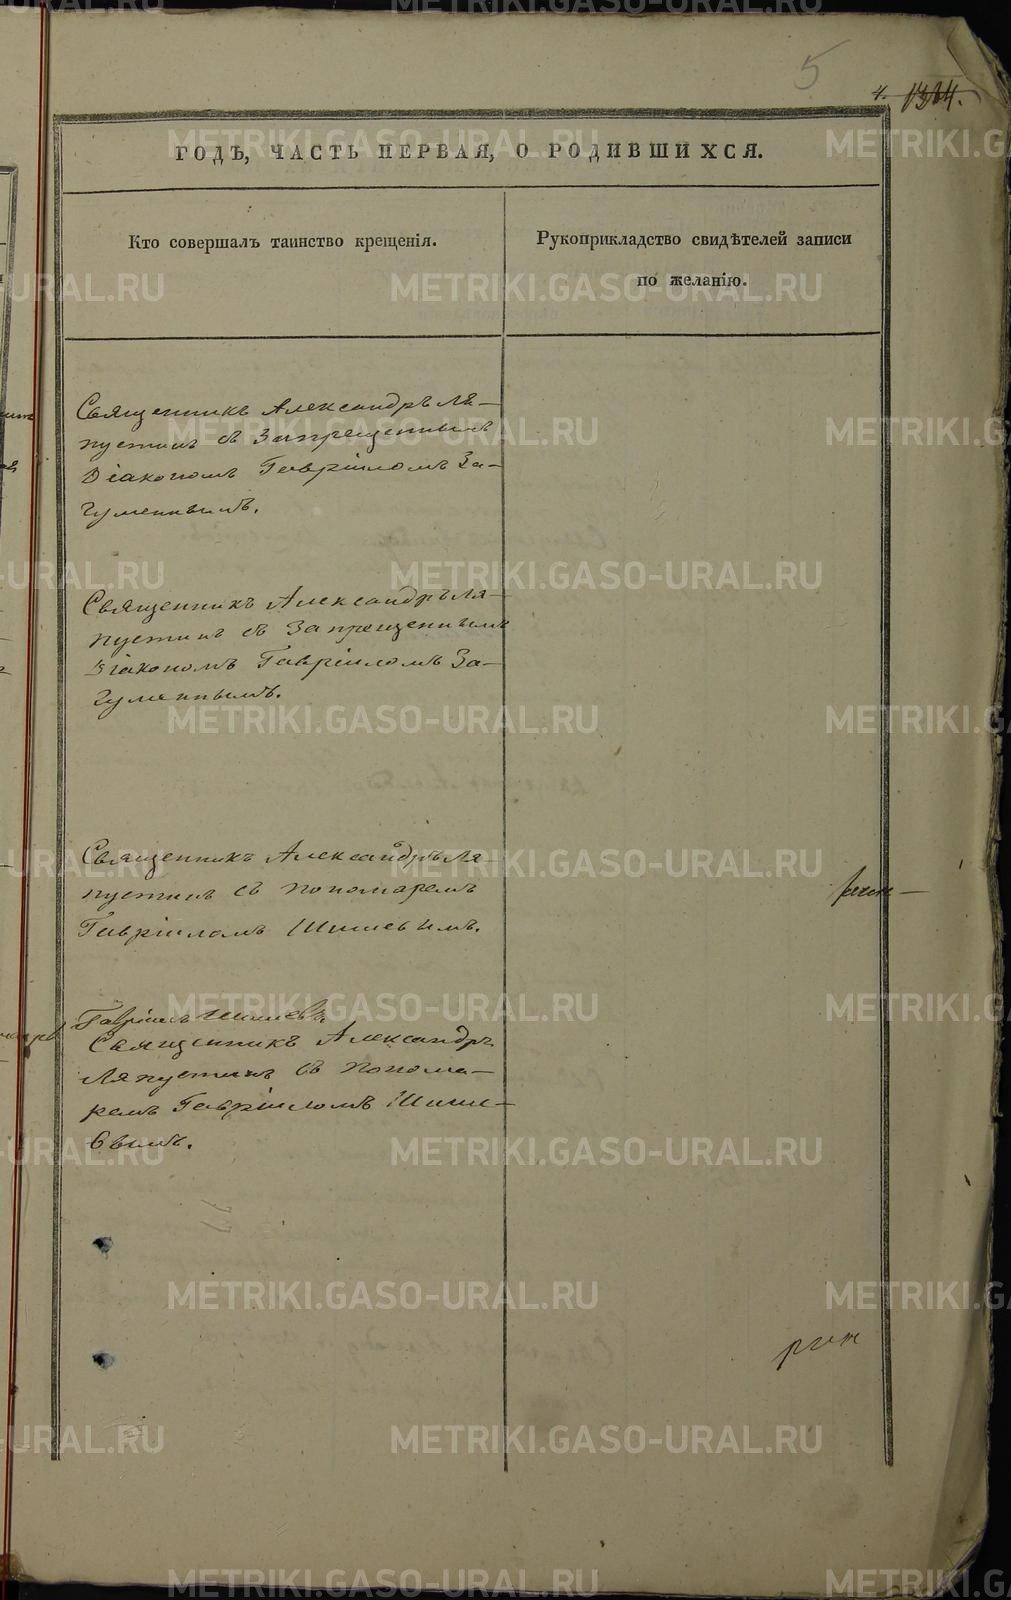 5
4. 1314.
ГОДЪ, ЧАСТЬ ПЕРВАЯ, О РОДИВШИХСЯ.
Кто совершалъ таинство крещенія.
Рукоприкладство свидѣтелей записи
по желанію.
Священникъ Александръ Ля-
пустинъ съ Запрещеннымъ
Діакономъ Гавріиломъ За-
гуменнымъ.
Священникъ Александръ Ля-
пустинъ съ Запрещеннымъ
Діакономъ Гавріиломъ За-
гуменнымъ.
Священникъ Александръ Ля-
пустинъ съ Пономаремъ
Гавріиломъ Шишевымъ.
Гавріилъ Шишевъ
Священникъ Александръ
Ляпустинъ съ Понома-
ремъ Гавріиломъ Шише-
вымъ.
METRIKI.GASO-URAL.RU